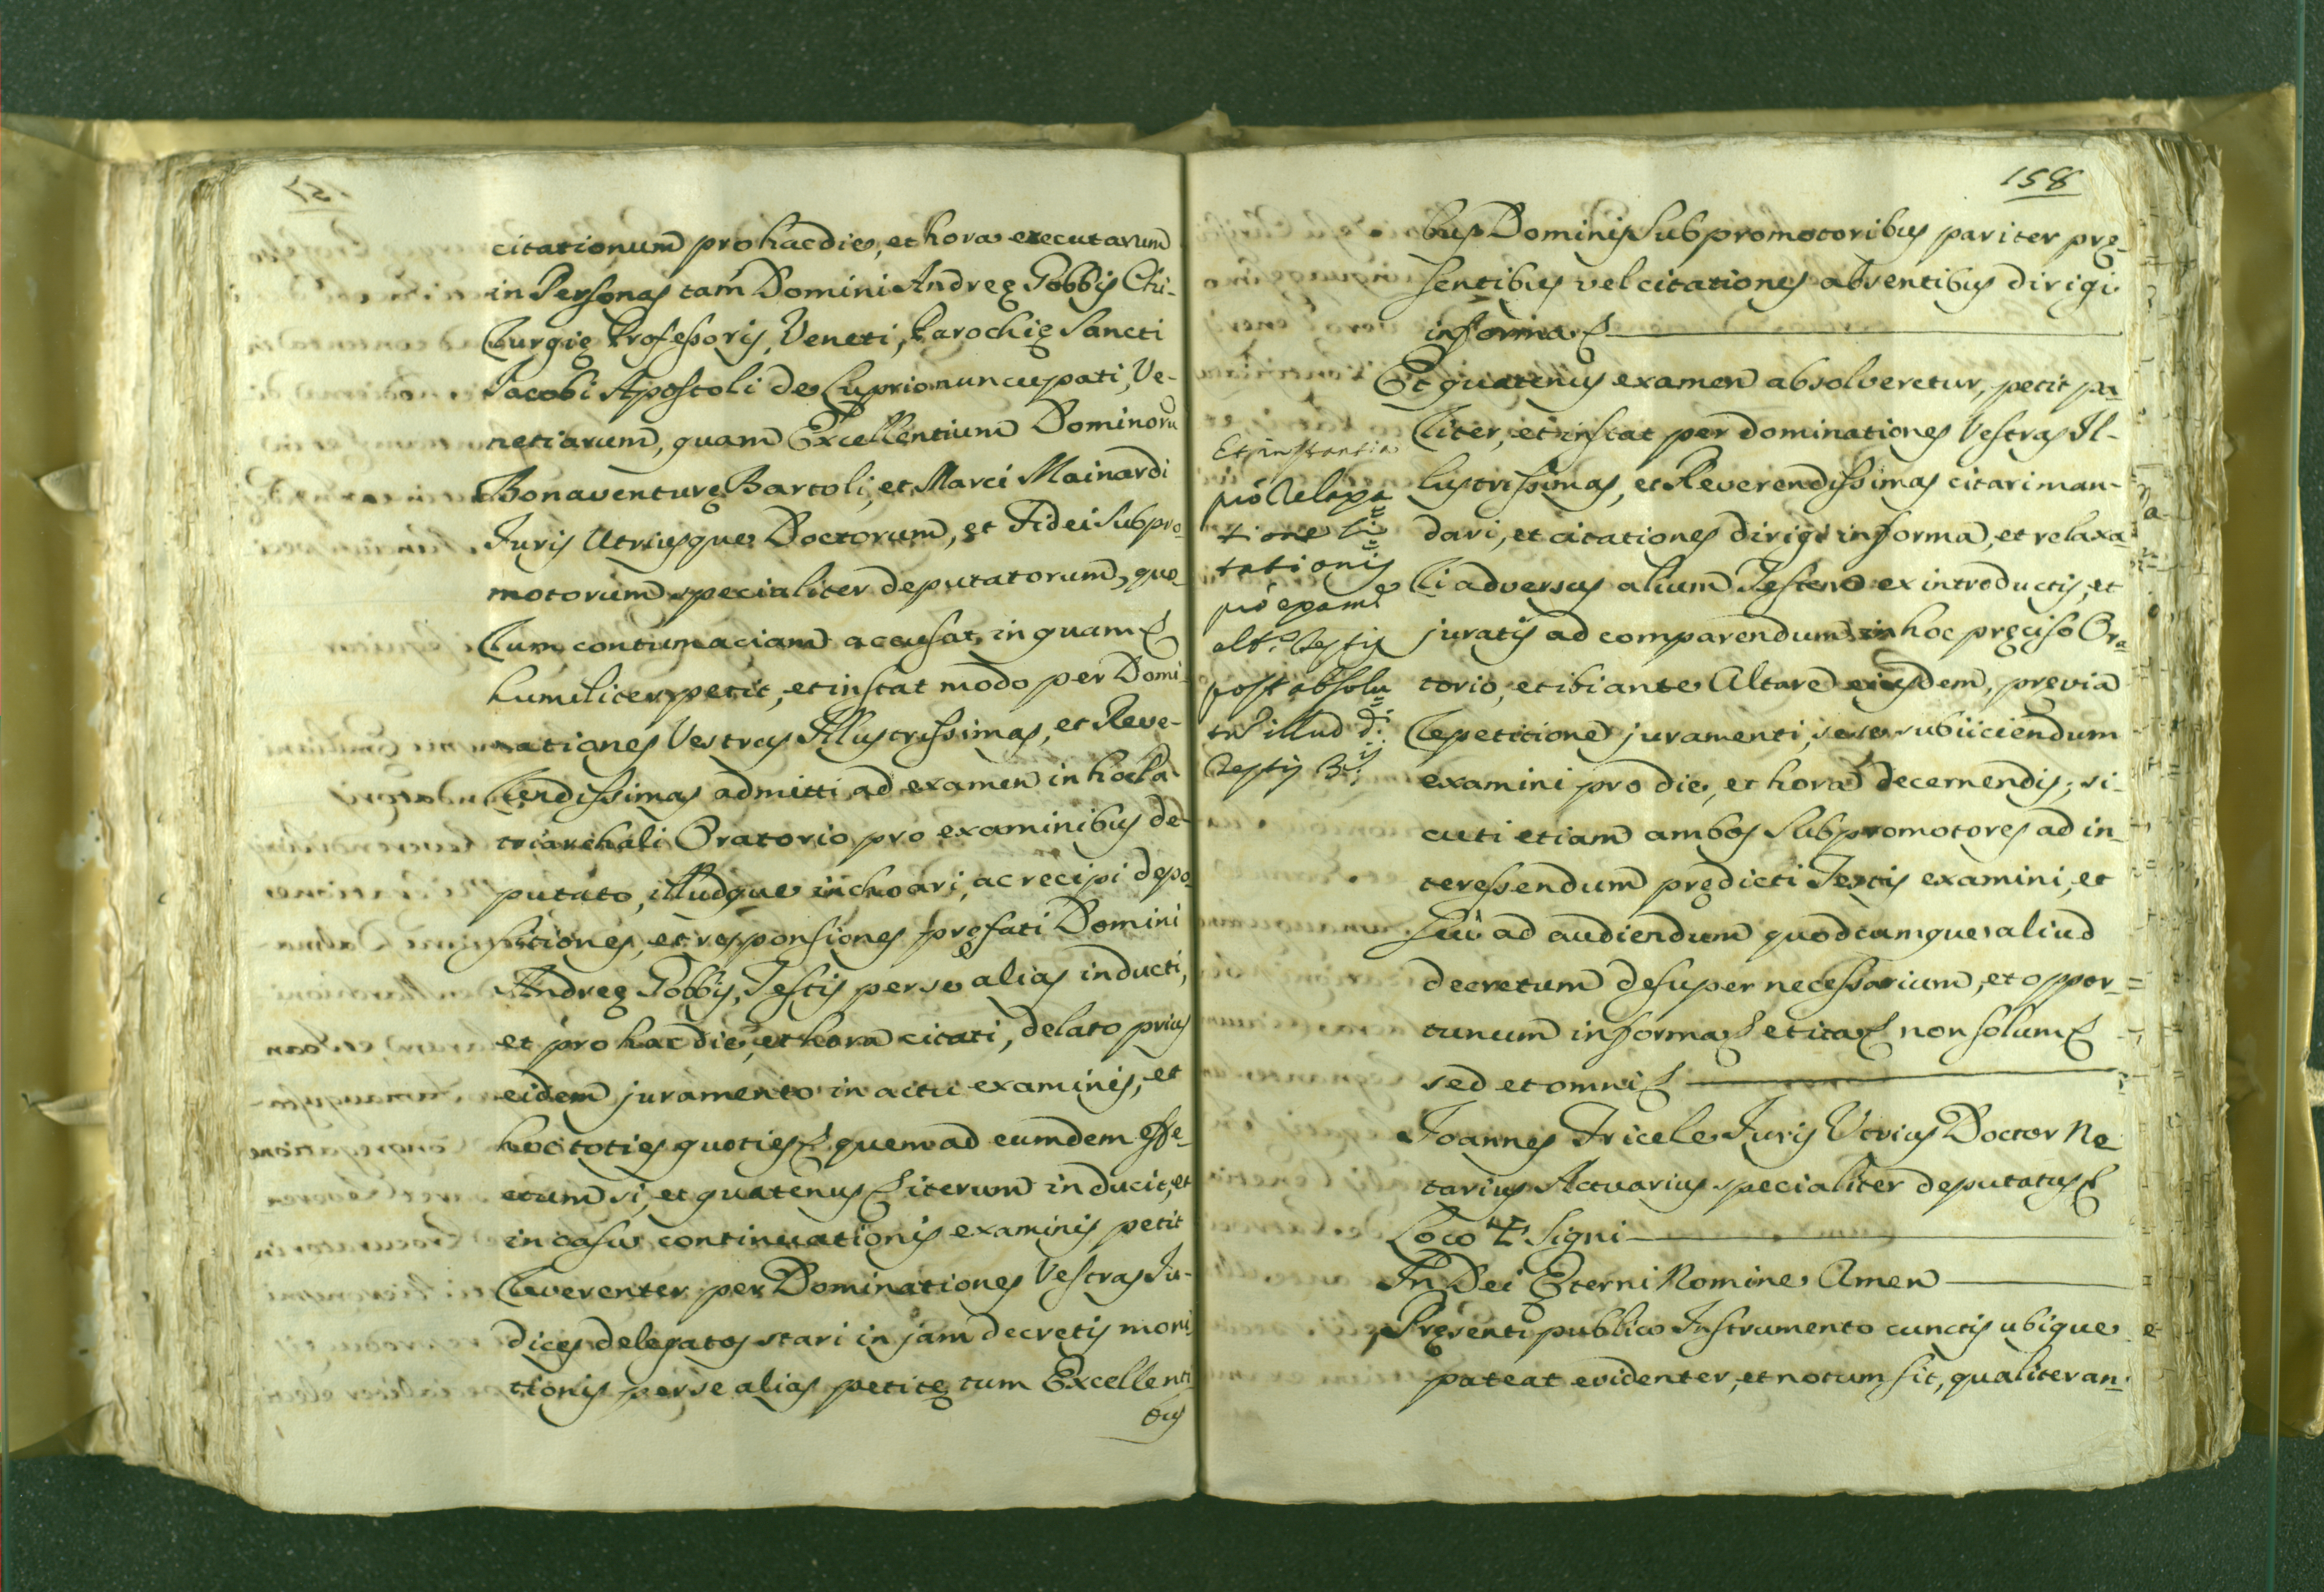 citationum pro hac die, et hora executarum
in Personas tam Domini Andreę Gobbis Chi-
rurgię Professoris, Veneti, Parochię Sancti
Jacobi Apostoli de Luprio nuncupati, Ve-
netiarum, quam Excellentium Dominorũ
Bonaventurę Bartoli, et Marci Mainardi
Juris Utriusque Doctorum, et Fidei Subpro-
motorum specialiter deputatorum, quo-
rum contumaciam accusat, in quam &
humiliter petit, et instat modo per Domi-
nationes Vestras Illustrissimas, et Reve-
rendissimas admitti ad examen in hoc Pa-
triarchali Oratorio pro examinibus de-
putato, illudque inchoari, ac recipi depo-
sitiones, et responsiones pręfati Domini
Andreę Gobbis, Testis per se alias inducti,
et pro hac die, et hora citati, delato prius
eidem juramento in actu examinis, et
hoc toties quoties & quem ad eumdem effe-
ctum si, et quatenus & iterum inducit, et
in casu continuationis examinis petit
reverenter per Dominationes Vestras Ju-
dices delegatos stari in jam decretis moni-
tionis per se alias petitę tum Excellenti-
bus
158
bus Dominis Subpromotoribus pariter prę-
sentibus vel citationes absentibus dirigi
in forma &
Et quatenus examen absolveretur, petit pa-
riter, et instat per dominationes Vestras Il-
lustrissimas, et Reverendissimas citari man-
dari, et citationes dirigi in forma, et relaxa-
ri adversus alium Testem ex introductis, et
juratis ad comparendum in hoc pręciso Ora-
torio, et ibi ante Altare eiusdem, previa
repetitione juramenti, sese subiiciendum
examini pro die, et hora decernendis; si-
cuti etiam ambos Subpromotores ad in-
teressendum prędicti Testis examini, et
seu ad audiendum quodcumque aliud
decretum desuper necessarium, et oppor-
tunum in forma & et ita & non solum &
sed et omni &
Joannes Fricele Juris Utrius Doctor No-
tarius Actuarius specialiter deputatus &
Loco ✝ Signi
In Dei Ęterni Nomine Amen
Pręsenti publico Instrumento cunctis ubique
pateat evidenter, et notum sit, qualiter an-
Et instantia
pro relaxa
tione Ci
tationis
pro exam.e
alt.s Testis
post absolu
tũ illud d.i
Testis B.i